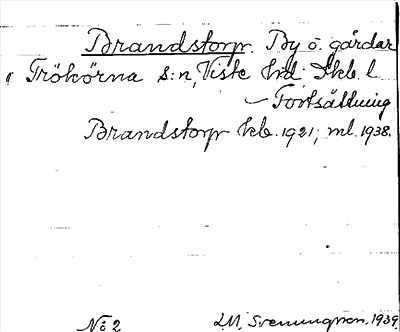 Brandstorp. By o. gårdar
i Trökörna s:n, Viste hd. Skb. l
– Fortsättning
Brandstorp kb. 1921; ml. 1938.
No 2 L.M. Svenungsson. 1939.